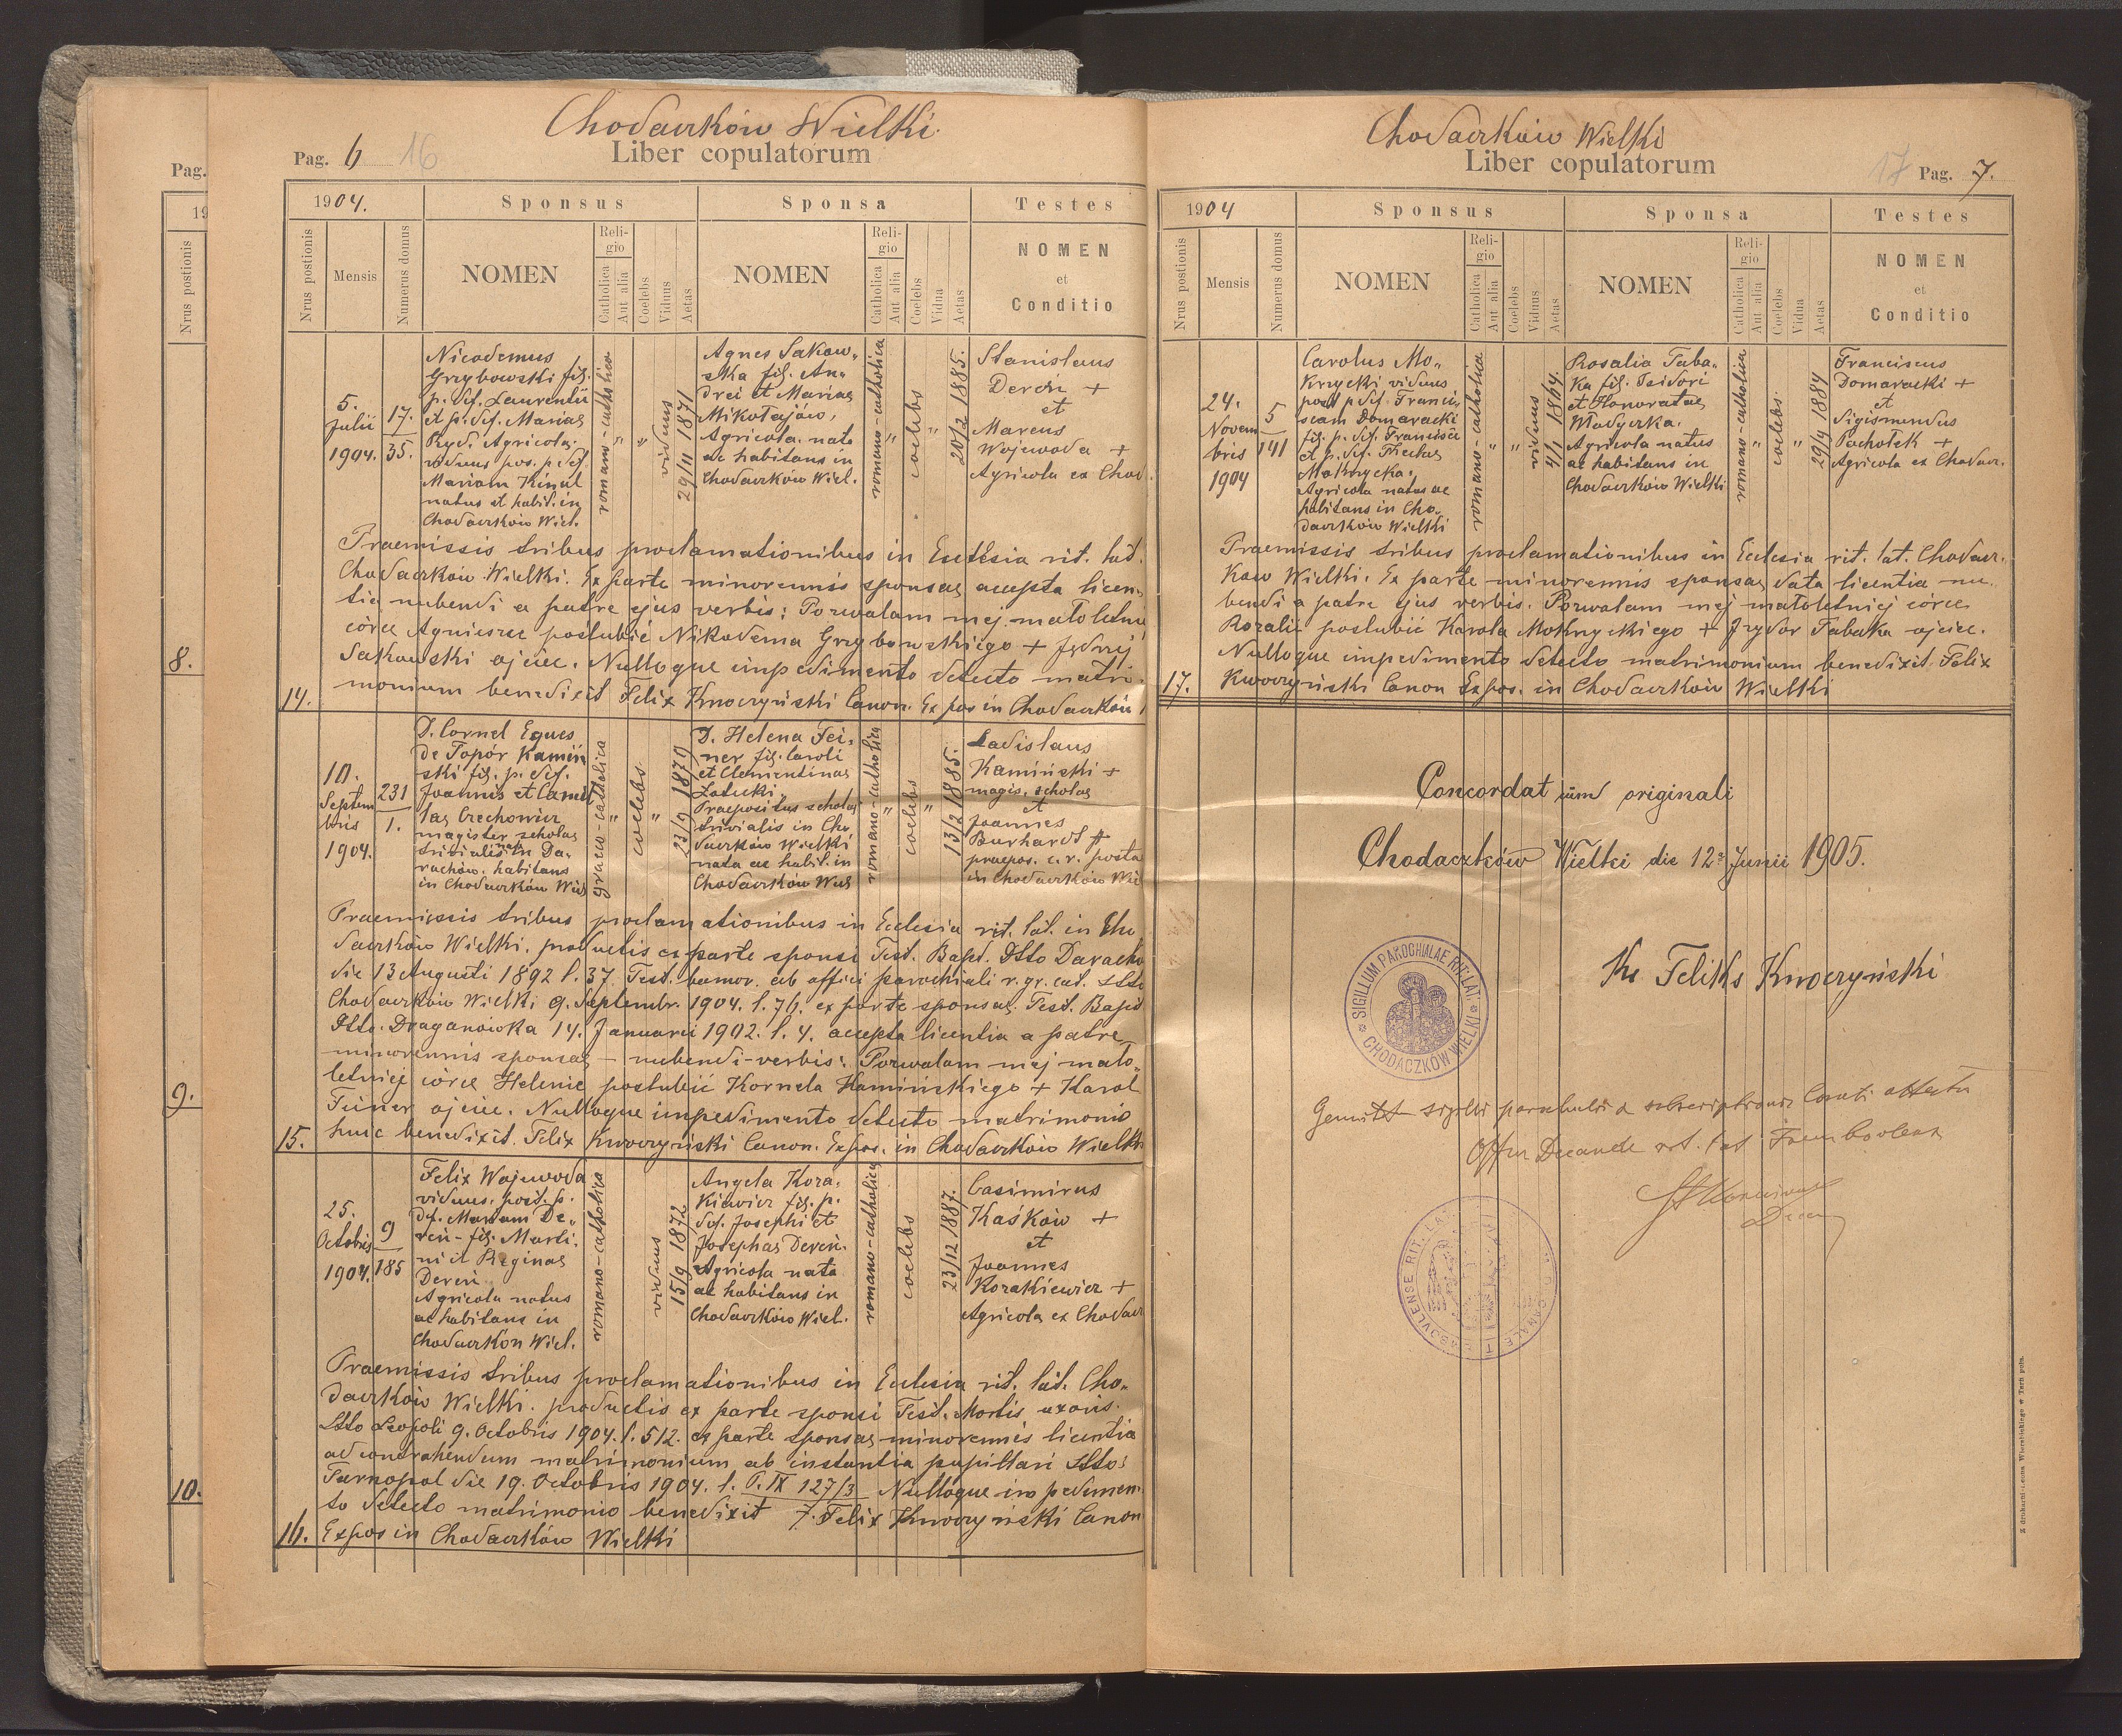 Pag.
19
Nrus postionis
8.
9.
10.
Chodaczków Wielki.
Pag. 6 16
Liber copulatorum
1904.
Sponsus
Sponsa
Testes
Nrus postionis
Mensis
Numerus domus
NOMEN
Reli-
gio
Catholica
Aut alia
Coelebs
Viduus
Aetas
NOMEN
Reli-
gio
Catholica
Aut alia
Coelebs
Vidua
Aetas
NOMEN
et
Conditio
5.
Julii
1904.
17.
35.
Nicodemus
Grzybowski fil.
p. def. Laurentii
et p. def. Mariae
Ryd. Agricola.
viduus pos. p. def.
Mariam
natus et habit. in
Chodaczków Wiel.
romano-catholica
"
"
viduus
29/11 1871
Agnes Sakow„
ska fil. An„
drei et Mariae
Mikołajów,
Agricola. nata
ac habitans in
Chodaczków Wiel.
romano-catholica
"
coelebs
"
20/2 1885.
Stanislaus
Dereń +
et
Marcus
Wojewoda +
Agricola ex Chod.
Praemissis tribus proclamationibus in Ecclesia rit. lat.
Chodaczków Wielki. Ex parte minorennis sponsae accepta licen„
tia nubendi a patre ejus verbis: Pozwalam mej małoletniej
córce Agnieszce poślubić Nikodema Grzybowskiego + Jędrzej
Sakowski ojciec. Nulloque impedimento detecto matri„
monium benedixit Felix Knoczyński Canon. Expos in Chodaczków
14.
10.
Septem
bris
1904.
231
1.
D. Cornel Eques
de Topór Kamiń
ski fil. p. def.
Joannis et Camil
lae Orechowicz
magister scholae
trivialis nat. in Da„
rachów. habitans
in Chodaczków Wiel
graeco-catolica
"
coelebs
"
23/9 1879
D. Helena Fei„
ner fil. Caroli
et Clementinae
Załucki„
Praepositus scholae
trivialis in Cho
daczków Wielki
nata ac habit. in
Chodaczków Wiel
romano-catholica
"
coelebs
"
13/2 1885.
Ladislaus
Kamiński +
magis. scholae
et
Joannes
Burhardt +
praepos. c. r. posta
in Chodaczków Wie
Praemissis tribus proclamationibus in Ecclesia rit. lat. in Cho
daczków Wielki. productis ex parte sponsi Test. Bapt. Dtto Daracho
die 13 Augusti 1892 l. 37. Test. bannor. ab offici parochiali r. gr. cat. Dtto
Chodaczków Wielki 9. Septembr. 1904. l. 76. ex parte sponsae. Test. Bapt
Dtto. Draganówka 14. Januarii 1902. l. 4. accepta licentia a patre
minorennis sponsae – nubendi – verbis: Pozwalam mej mało„
letniej córce Helenie poślubić Kornela Kamińskiego + Karol
Feiner ojciec. Nulloque impedimento detecto matrimonio
huic benedixit. Felix Knoczyński Canon. Expos. in Chodaczków Wielki
15.
25.
Octobris
1904.
9
185
Felix Wojewoda
viduus. post. p.
def. Mariam De„
reń – fil. Marti„
ni et Reginae
Dereń
Agricola natus
ac habitans in
Chodaczków Wiel.
romano-catholica
viduus
15/9 1872
Angela Kora„
kiewicz fil. p.
def. Josephi et
Josephae Dereń.
Agricola nata
ac habitans in
Chodaczków Wiel.
romano-catholica
coelebs
23/12 1887.
Casimirus
Kaśków +
et
Joannes
Korakiewicz +
Agricola ex Chodacz
Praemissis tribus proclamationibus in Ecclesia rit. lat. Cho„
daczków Wielki. productis ex parte sponsi Test. Mortis uxoris.
Dtto Leopoli 9. Octobris 1904. l. 512. ex parte sponsae minorennis licentia
ad contrahendum matrimonium ab instantia pupillari Dtto:
Tarnopol die 19. Octobris 1904. l. P. IX 127/3 Nulloque impedimen„
to detecto matrimonio benedixit F. Felix Knoczyński Canon
16. Expos in Chodaczków Wielki
Chodaczków Wielki
Liber copulatorum
17 Pag. 7.
1904
Sponsus
Sponsa
Testes
Nrus postionis
Mensis
Numerus domus
NOMEN
Reli-
gio
Catholica
Aut alia
Coelebs
Viduus
Aetas
NOMEN
Reli-
gio
Catholica
Aut alia
Coelebs
Vidua
Aetas
NOMEN
et
Conditio
24.
Novem
bris
1904
5
141
Carolus Mo„
krzycki viduus
post p def. Francis
scam Domaracki
fil. p. def. Francisci
et p. def. Theclae
Mokrzycka.
Agricola natus ac
habitans in Cho„
daczków Wielki
romano-catholica
"
"
viduus
4/1 1864.
Rosalia Taba„
ka fil. Isidori
et Honoratae
Madyczka.
Agricola natus
ac habitans in
Chodaczków Wielki
romano-catholica
coelebs.
"
29/4 1884
Franciscus
Domaracki +
et
Sigismundus
Pachołek +
Agricola ex Chodacz.
Praemissis tribus proclamationibus in Ecclesia rit. lat. Chodacz„
ków Wielki. Ex parte minorennis sponsae data licentia nu„
bendi a patre ejus verbis. Pozwalam mej małoletniej córce
Rozalii poślubić Karola Mokrzyckiego + Izydor Tabaka ojciec.
Nulloque impedimento detecto matrimonium benedixit. Felix
17. Knoczyński Canon Expos. in Chodaczków Wielki
Concordat cum originali
Chodaczków Wielki die 12ª Junii 1905.
Ks. Feliks Knoczyński
SIGILLUM PAROCHIALAE RIT. LAT.
CHODACZKÓW WIELKI
sigilli parochialis &
rit. lat
Z drukarni